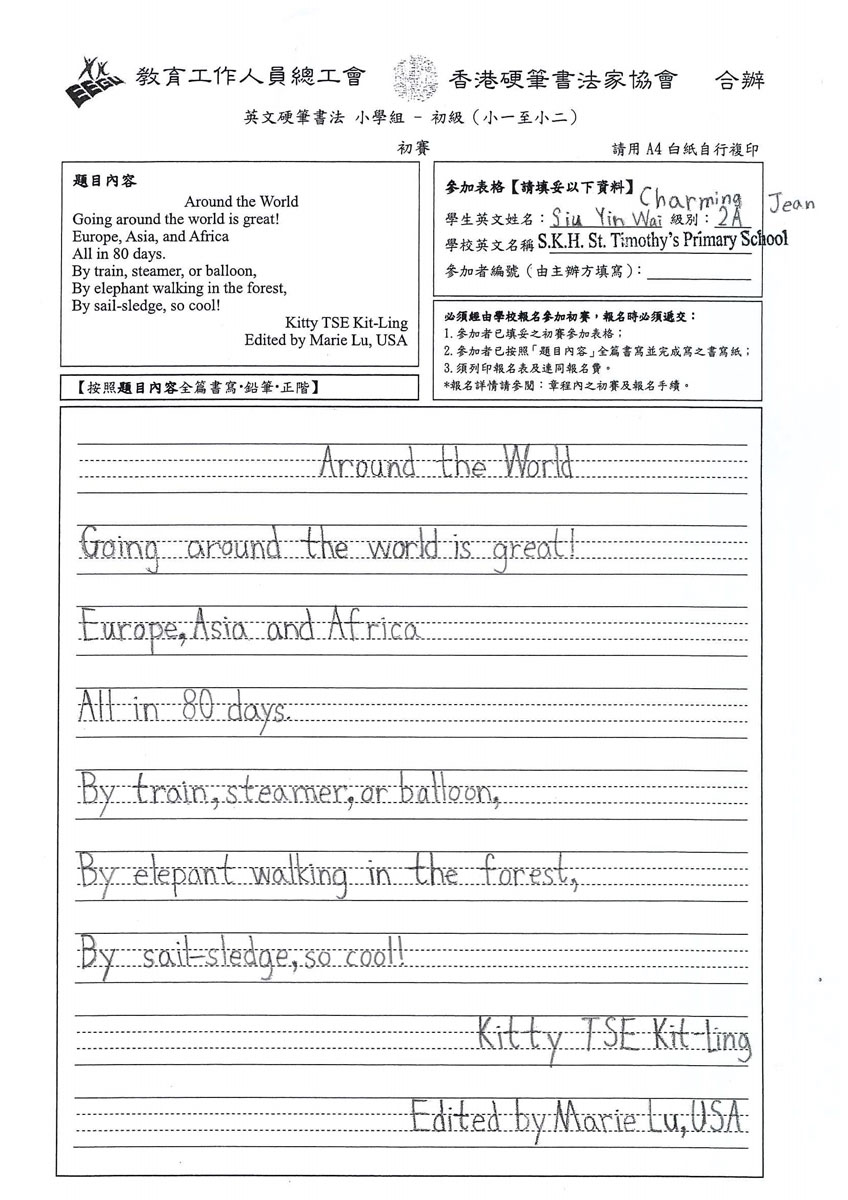 EEGU 教育工作人員總工會 香港硬筆書法家協會 合辦
英文硬筆書法 小學組 - 初級（小一至小二）
初賽
請用 A4 白紙自行複印
題目內容
Around the World
Going around the world is great!
Europe, Asia, and Africa
All in 80 days.
By train, steamer, or balloon,
By elephant walking in the forest,
By sail-sledge, so cool!
Kitty TSE Kit-Ling
Edited by Marie Lu, USA
【按照題目內容全篇書寫·鉛筆·正階】
參加表格【請填妥以下資料】
學生英文姓名：Siu Yin Wai Charming Jean 級別：2A
學校英文名稱 S.K.H. St. Timothy's Primary School
參加者編號（由主辦方填寫）：
必須經由學校報名參加初賽，報名時必須遞交：
1. 參加者已填妥之初賽參加表格；
2. 參加者已按照「題目內容」全篇書寫並完成寫之書寫紙；
3. 須列印報名表及連同報名費。
*報名詳情請參閱：章程內之初賽及報名手續。
Around the World
Going around the world is great!
Europe, Asia and Africa
All in 80 days.
By train, steamer, or balloon,
By elepant walking in the forest,
By sail-sledge, so cool!
Kitty TSE Kit-Ling
Edited by Marie Lu, USA